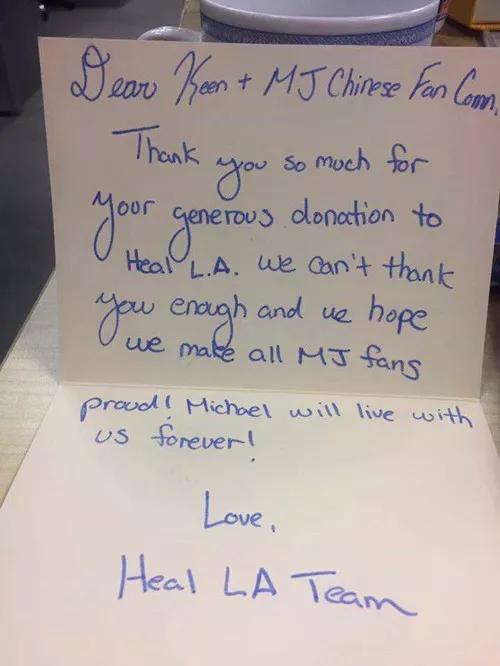 Dear Keen + MJ Chinese Fan Comm.
Thank you so much for
your generous donation to
Heal L.A. we can't thank
you enough and we hope
we make all MJ fans
proud! Michael will live with
us forever!
Love,
Heal LA Team